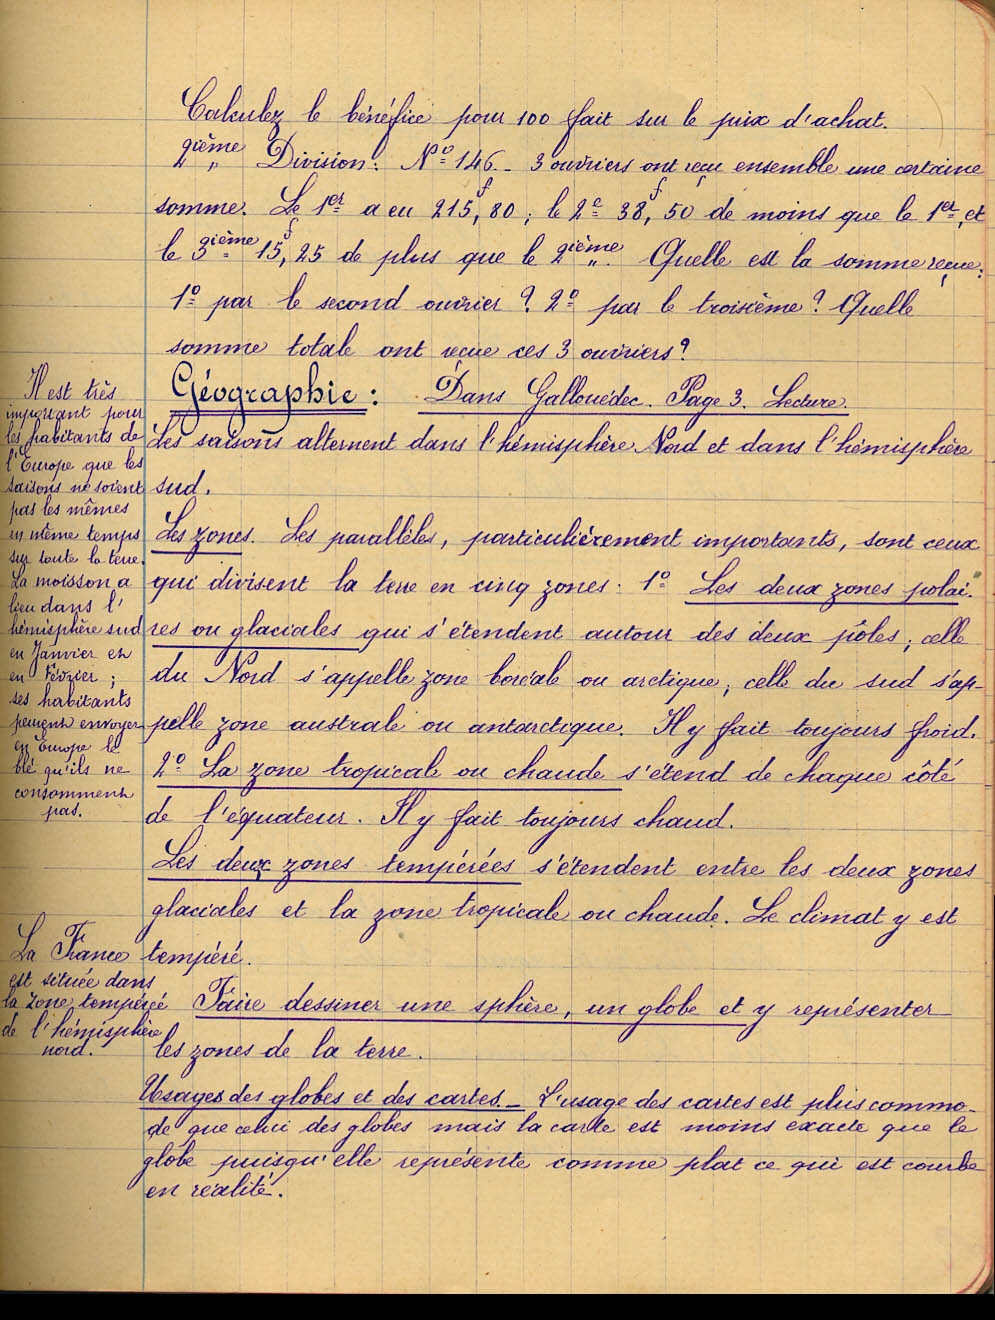 Calculez le bénéfice pour 100 fait sur le prix d'achat.
2ième Division : Nº 146 _ 3 ouvriers ont reçu ensemble une certaine
somme. Le 1er a eu 215f,80 ; le 2e 38f,50 de moins que le 1er, et
le 3ième 15f,25 de plus que le 2ième. Quelle est la somme reçue :
1º par le second ouvrier ? 2º par le troisième ? Quelle
somme totale ont reçue ces 3 ouvriers ?
Géographie : Dans Gallouédec. Page 3. Lecture.
Les saisons alternent dans l'hémisphère Nord et dans l'hémisphère
sud.
Il est très
important pour
les habitants de
l'Europe que les
saisons ne soient
pas les mêmes
en même temps
sur toute la terre.
La moisson a
lieu dans l'
hémisphère sud
en Janvier et
en Février ;
ses habitants
peuvent envoyer
en Europe le
blé qu'ils ne
consomment
pas.
Les zones. Les parallèles, particulièrement importants, sont ceux
qui divisent la terre en cinq zones : 1º Les deux zones polai-
res ou glaciales qui s'étendent autour des deux pôles ; celle
du Nord s'appelle zone boréale ou arctique ; celle du sud s'ap-
pelle zone australe ou antarctique. Il y fait toujours froid.
2º La zone tropicale ou chaude s'étend de chaque côté
de l'équateur. Il y fait toujours chaud.
Les deux zones tempérées s'étendent entre les deux zones
glaciales et la zone tropicale ou chaude. Le climat y est
tempéré.
La France
est située dans
la zone tempérée
de l'hémisphère
nord.
Faire dessiner une sphère, un globe et y représenter
les zones de la terre.
Usages des globes et des cartes. _ L'usage des cartes est plus commo-
de que celui des globes mais la carte est moins exacte que le
globe puisqu'elle représente comme plat ce qui est courbe
en réalité.